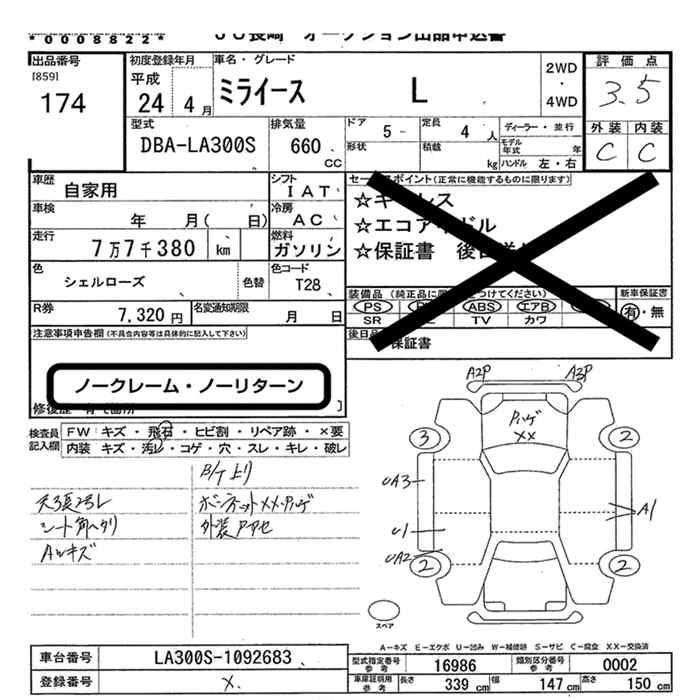 *0008822* JU長崎 オークション出品申込書
出品番号 初度登録年月 車名・グレード 2WD・4WD 評価点
[859] 174 平成 24年 4月 ミライース L 3.5
型式 DBA-LA300S 排気量 660cc ドア 5 定員 4人 ディーラー・並行 外装 内装
形状 積載 kg モデル年式 年 ハンドル 左・右 C C
車歴 自家用 シフト IAT セールスポイント(正常に機能するものに限ります)
車検 年 月( 日) 冷房 AC
走行 7万7千380 km 燃料 ガソリン ☆保証書
色 シェルローズ 色替 色コード T28
装備品 新車保証書
R券 7,320円 名変通知期限 月 日 PS ABS エアB 有・無
SR TV カワ
注意事項申告欄(不具合内容等は具体的に記入して下さい) 後日 保証書
ノークレーム・ノーリターン
修復歴
検査員記入欄 FW キズ・飛石・ヒビ割・リペア跡・×要
内装 キズ・汚レ・コゲ・穴・スレ・キレ・破レ
シート
Aキズ
ボンネットXX・ハゲ
A2P A3P
ハゲ XX
3 2
UA3
A1
U1
UA2
2 2
スペア
A-キズ E-エクボ U-凹み W-補修跡 S-サビ C-腐食 XX-交換済
車台番号 LA300S-1092683 型式指定番号 参考 16986 類別区分番号 参考 0002
登録番号 X. 車庫証明用 参考 長さ 339cm 幅 147cm 高さ 150cm